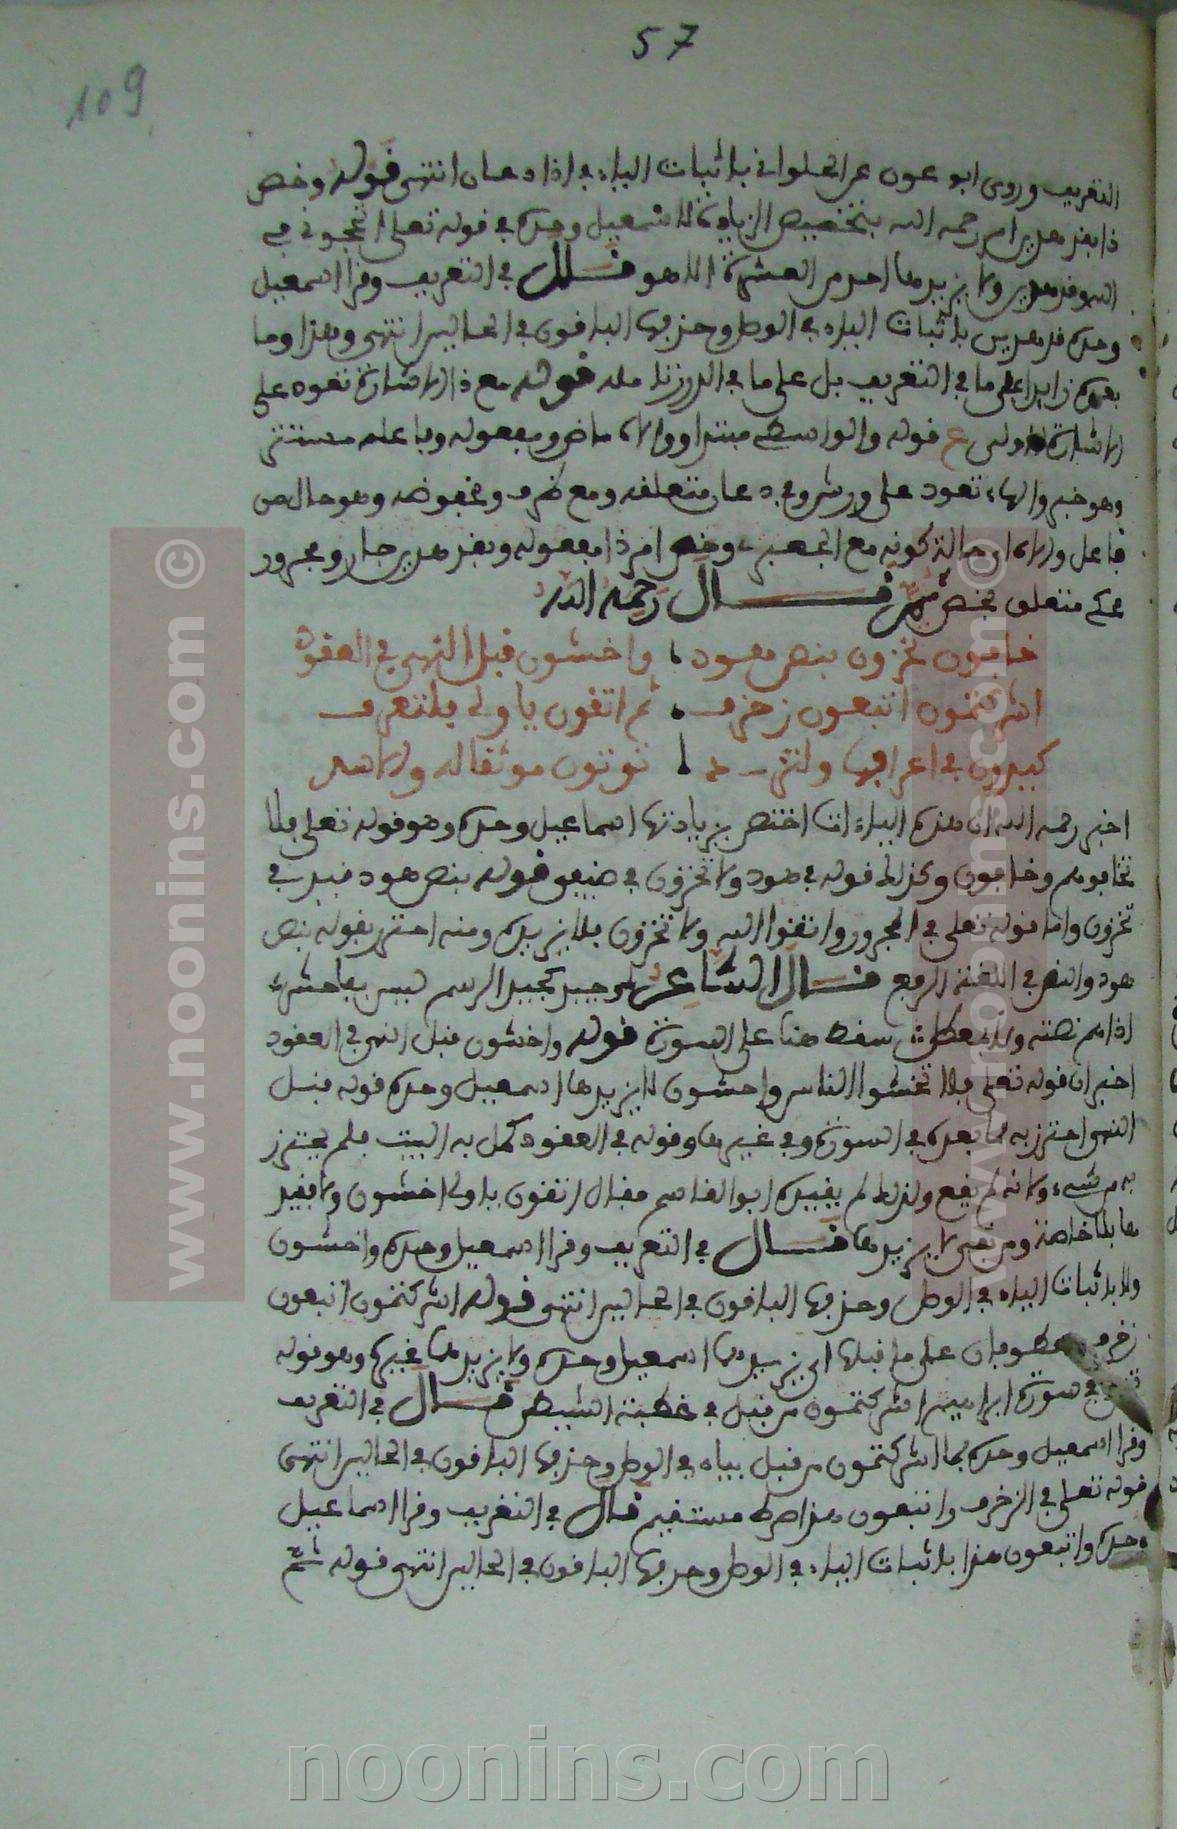 57
109
التعريف وروى ابو عون عن الحلواني باثبات الياء في اذا دعان انتهى قوله وخص
ذا بقد هدين امر رحمه الله بتخصيص الزيادة لاسمعيل وحده في قوله تعلى اتحجوني في
الله وقد هدين ولا يزيدها احد من العشرة الا هو قال في التعريف وقرا اسمعيل
وحده قد هدين باثبات الياء في الوصل وحذفها الباقون في الحالين انتهى وهذا وما
بعده زايد على ما في التعريف بل على ما في الدرر قوله مع ذا الاشارة تعود على
قوله والواسطه مبتدا وولاه ماض ومفعوله وفاعله مستتر
وهو خبر والهاء تعود على ورش وفي دعان متعلقه ومع ظرف ومخفوضه وهو حال من
فاعل ولاه اي حالة كونه مع الجعبر وخص امر ذا مفعوله وبقد هدين جار ومجرور
محكي متعلق بخص ثم قال رحمه الله
خافون تخزون بنص هود واخشون قبل النهي في العقود
اشركتمون اتبعون زخرف ثم اتقون يا ولي فلتعرف
كيدون في اعرافها توتون موثقا له
اخبر رحمه الله ان هذه الياءات اختص بزيادتها اسماعيل وحده وهو قوله تعلى فلا
تخافوهم وخافون وكذلك قوله في هود ولا تخزون في ضيفي قوله بنص هود قيد في
تخزون واما قوله تعلى في الحجر واتقوا الله ولا تخزون فلا يزيده ومنه احترز بقوله بنص
هود والنص في اللغة الرفع قال الشاعر وجيد كجيد الريم ليس بفاحش
اذا هي نصته ولا بمعطل سقط هنا على السورة قوله واخشون قبل النهي في العقود
اخبر ان قوله تعلى فلا تخشوا الناس واخشون لا يزيدها الا اسمعيل وحده قوله قبل
النهي احترز به مما بعده في السورة وفي غيرها وقوله في العقود كمل به البيت فلم يحترز
به من شيء ولانه لم يقع ولذلك لم يقيده ابو القاسم فقال اتقون يا ولي اخشون ولا
قال في التعريف وقرا اسمعيل وحده واخشون
ولا باثبات الياء في الوصل وحذفها الباقون في الحالين انتهى قوله اشركتمون اتبعون
زخرف معطوفان على ما قبلها اي يزيدها اسمعيل وحده ولا يزيدها غيره وهو قوله
تعلى في سورة ابراهيم اشركتمون من قبل في خطبة الشيطن قال في التعريف
وقرا اسمعيل وحده بما اشركتمون من قبل بياء في الوصل وحذفها الباقون في الحالين انتهى
قوله تعلى في الزخرف واتبعون هذا صرط مستقيم قال في التعريف وقرا اسماعيل
وحده واتبعون هذا باثبات الياء في الوصل وحذفها الباقون في الحالين انتهى قوله ثم
www.noonins.com ©
www.noonins.com ©
noonins.com